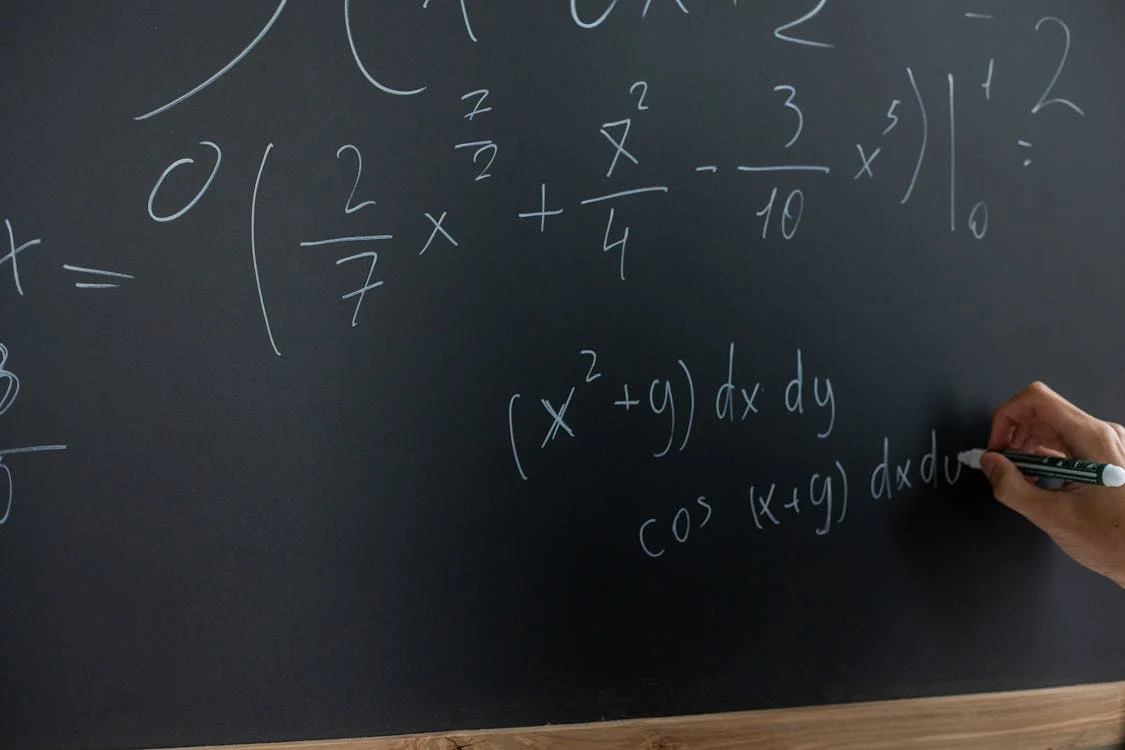 2
x = 0 ( 2/7 x^(7/2) + x^2/4 - 3/10 x^5 ) |_0^1 =
(x^2 + y) dx dy
cos (x+y) dx dy